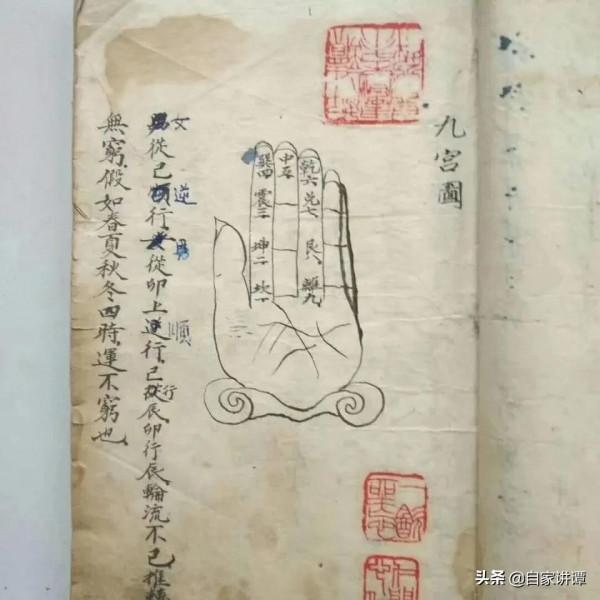 九宮圖
巽四
震三
坤二
坎一
中五
乾六
兌七
艮八
離九
女 逆 男 順 行
從巳行從卯上逆行巳從辰卯行辰輪流不已推
無窮假如春夏秋冬四時運不窮也
头条 @自家讲谭